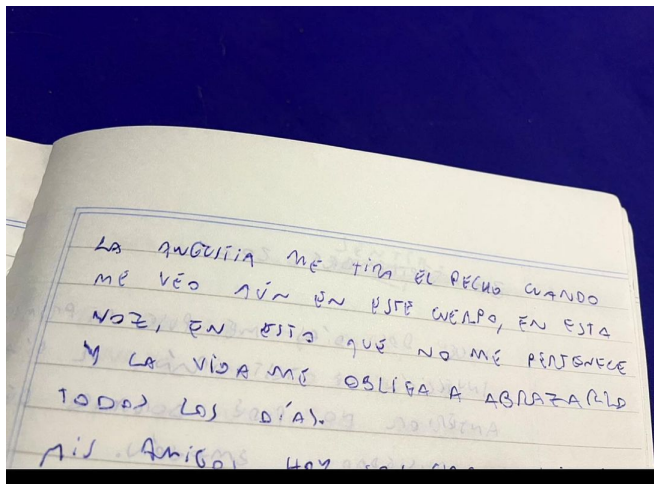 LA ANGUSTIA ME TIRA EL PECHO CUANDO
ME VEO AÚN EN ESTE CUERPO, EN ESTA
VOZ, EN ESTO QUE NO ME PERTENECE
Y LA VIDA ME OBLIGA A ABRAZARLO
TODOS LOS DÍAS.
MIS AMIGOS HOY